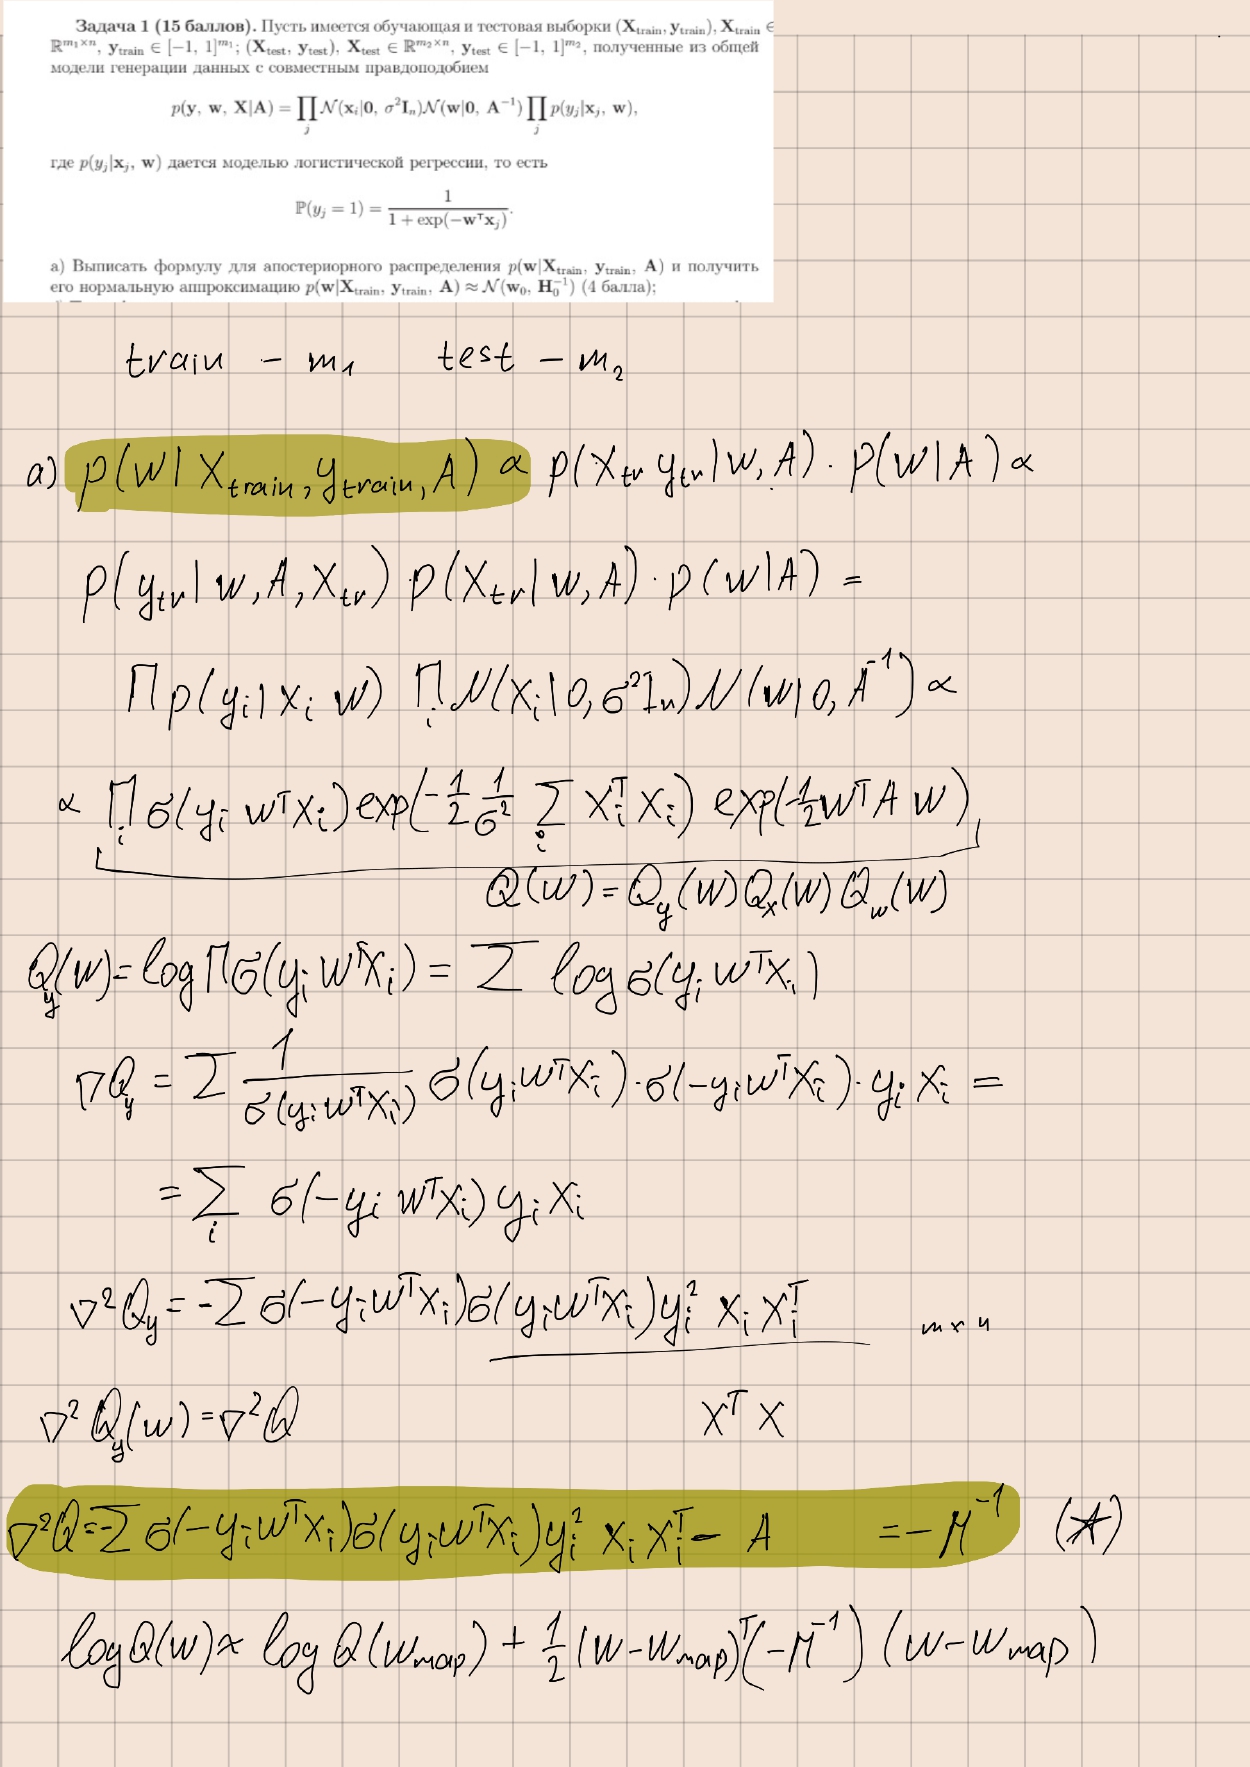 Задача 1 (15 баллов). Пусть имеется обучающая и тестовая выборки (X_train, y_train), X_train ∈
ℝ^{m₁×n}, y_train ∈ [−1, 1]^{m₁}; (X_test, y_test), X_test ∈ ℝ^{m₂×n}, y_test ∈ [−1, 1]^{m₂}, полученные из общей
модели генерации данных с совместным правдоподобием
p(y, w, X|A) = ∏_j N(x_i|0, σ²I_n)N(w|0, A⁻¹) ∏_j p(y_j|x_j, w),
где p(y_j|x_j, w) дается моделью логистической регрессии, то есть
ℙ(y_j = 1) = 1 / (1 + exp(−wᵀx_j)).
а) Выписать формулу для апостериорного распределения p(w|X_train, y_train, A) и получить
его нормальную аппроксимацию p(w|X_train, y_train, A) ≈ N(w₀, H₀⁻¹) (4 балла);
train − m₁ test − m₂
а) p(w | X_train, y_train, A) ∝ p(X_tr y_tr | w, A) · p(w | A) ∝
p(y_tr | w, A, X_tr) · p(X_tr | w, A) · p(w | A) =
∏ p(y_i | x_i w) ∏_i N(x_i | 0, σ²I_n) N(w | 0, A⁻¹) ∝
∝ ∏_i σ(y_i wᵀx_i) exp(−1/2 1/σ² ∑_i x_iᵀ x_i) exp(−1/2 wᵀ A w)
Q(w) = Q_y(w) Q_x(w) Q_w(w)
Q_y(w) = log ∏ σ(y_i wᵀx_i) = ∑ log σ(y_i wᵀx_i)
∇Q_y = ∑ 1/σ(y_i wᵀx_i) σ(y_i wᵀx_i) · σ(−y_i wᵀx_i) · y_i x_i =
= ∑_i σ(−y_i wᵀx_i) y_i x_i
∇²Q_y = −∑ σ(−y_i wᵀx_i) σ(y_i wᵀx_i) y_i² x_i x_iᵀ m × n
∇² Q_y(w) = ∇²Q Xᵀ X
∇²Q = −∑ σ(−y_i wᵀx_i) σ(y_i wᵀx_i) y_i² x_i x_iᵀ − A = −M⁻¹ (★)
log Q(w) ∝ log Q(w_map) + 1/2 (w − w_map)ᵀ(−M⁻¹) (w − w_map)